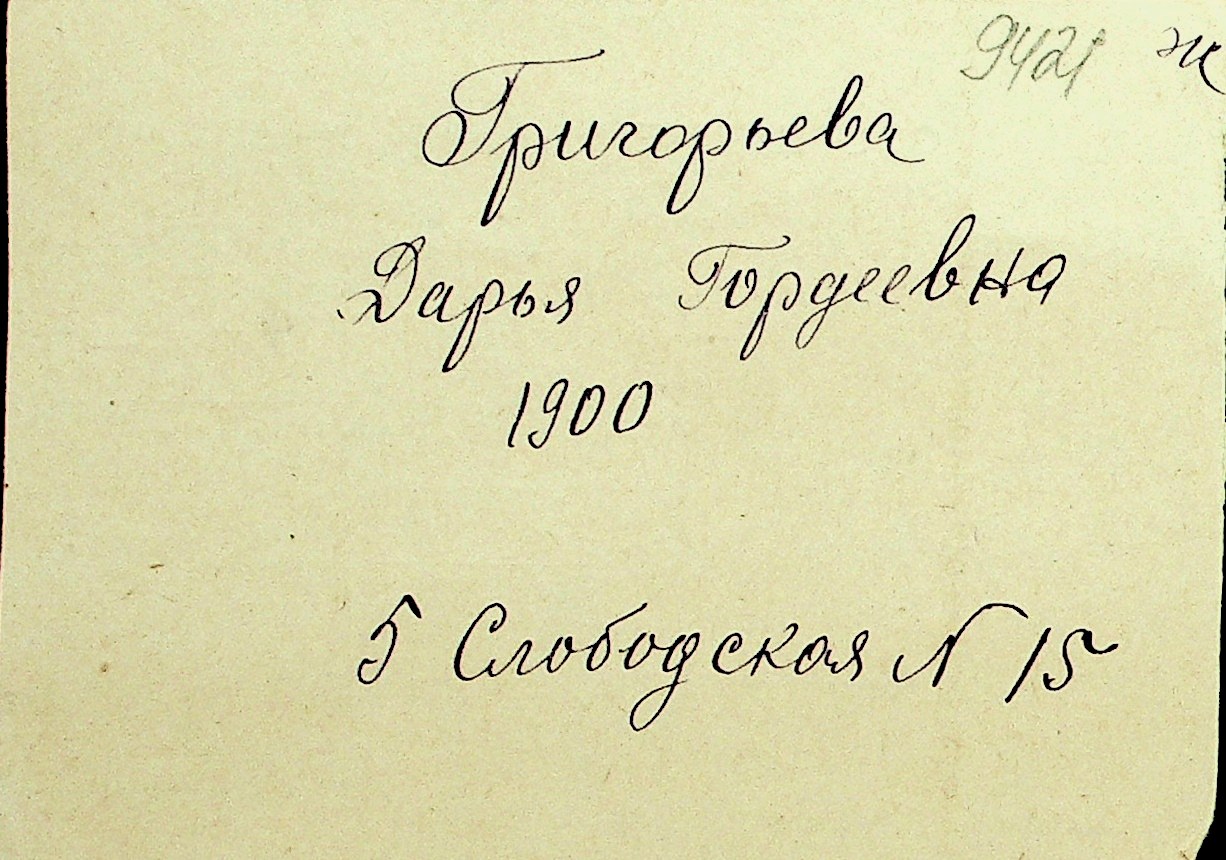 9421 ж
Григорьева
Дарья Гордеевна
1900
5 Слободская N 15